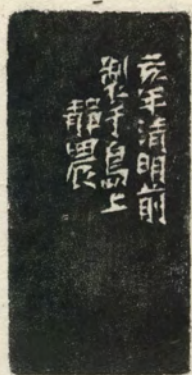 亥年清明前
製于島上
靜農